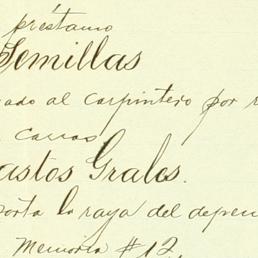 préstamo
Semillas
ado al carpintero por
carros
astos Grales.
porta la raya del depen
Memoria #12